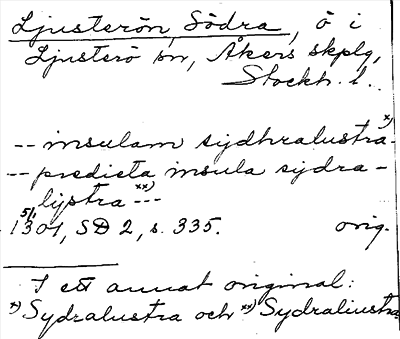 Ljusterön, Södra, ö i
Ljusterö sn, Åkers skplg,
Stockh. l.
-- insulam sydhralustra x)-
-- predicta insula sydra-
lystra xx) ---
5/1 1301, SD 2, s. 335. orig.
I ett annat original:
x) Sydralustra och xx) Sydraliustra